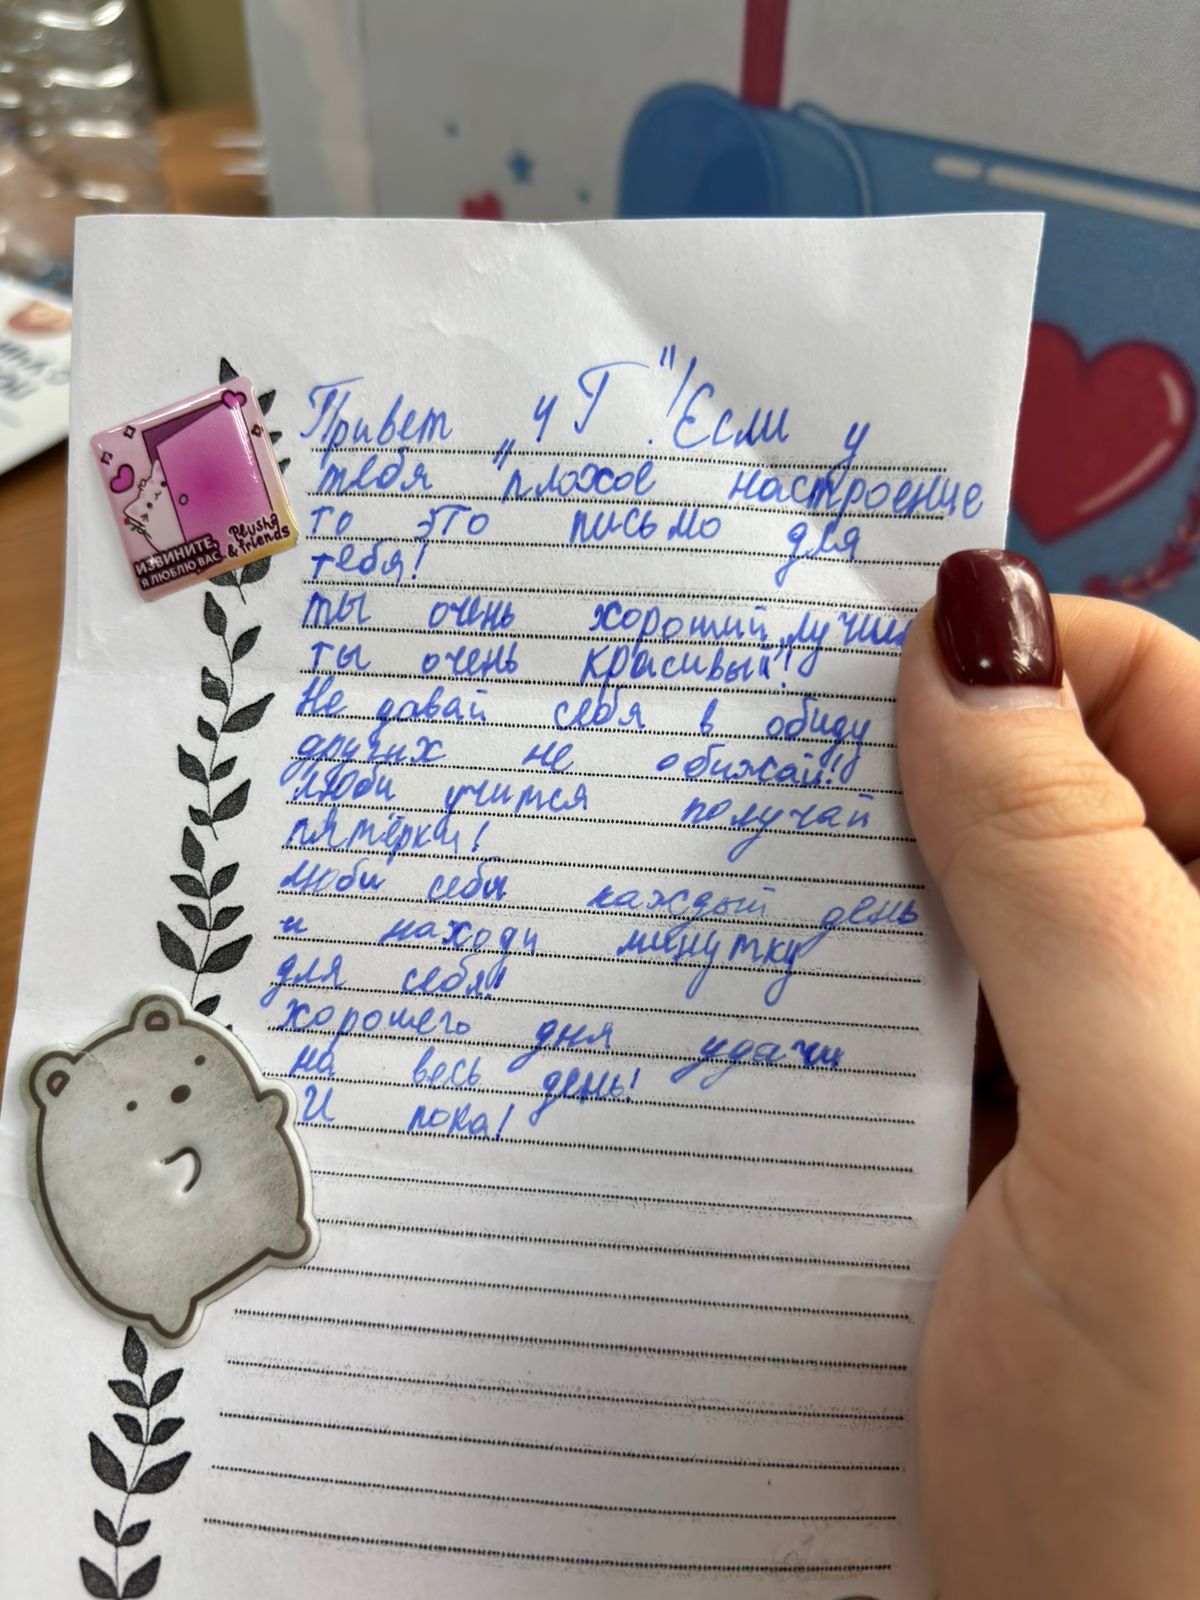 Привет "4 Г". Если у
тебя плохое настроение
то это письмо для
тебя!
ты очень хороший, лучши
ты очень красивый!
Не давай себя в обиду
других не обижай!
Люби учится получай
пятёрки!
люби себя каждый день
и находи минутку
для себя!
хорошего дня удачи
на весь день!
И пока!
ИЗВИНИТЕ,
Я ЛЮБЛЮ ВАС
Plush
& friends